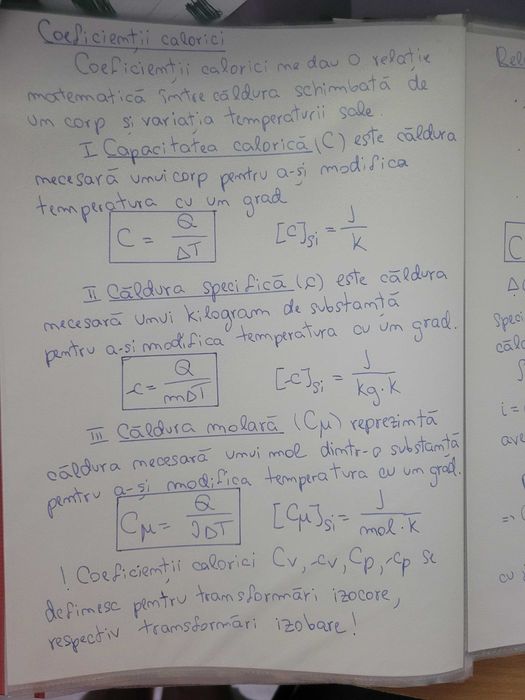 Coeficienții calorici
Coeficienții calorici ne dau o relație
matematică între căldura schimbată de
un corp și variația temperaturii sale.
I Capacitatea calorică (C) este căldura
necesară unui corp pentru a-și modifica
temperatura cu un grad
C = Q/ΔT [C]SI = J/K
II Căldura specifică (c) este căldura
necesară unui kilogram de substanță
pentru a-și modifica temperatura cu un grad.
c = Q/mΔT [c]SI = J/kg·K
III Căldura molară (Cμ) reprezintă
căldura necesară unui mol dintr-o substanță
pentru a-și modifica temperatura cu un grad.
Cμ = Q/νΔT [Cμ]SI = J/mol·K
! Coeficienții calorici Cv, cv, Cp, cp se
definesc pentru transformări izocore,
respectiv transformări izobare!
Rel
C
Δ
speci
căl
i =
ave
=>
cu i